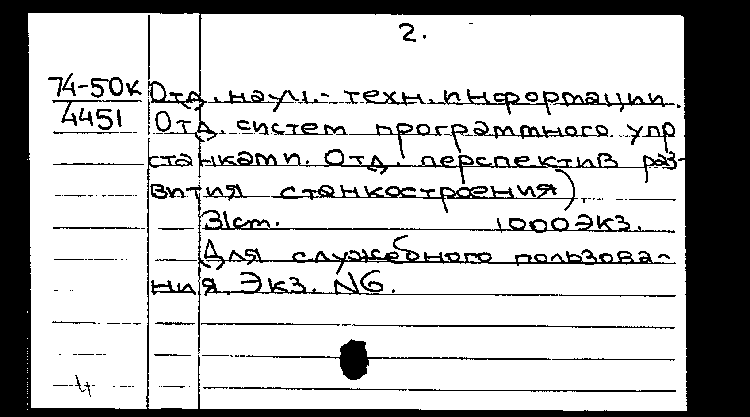 2.
74-50к Отд. науч.- техн. информации.
4451 Отд. систем программного упр
станками. Отд. перспектив раз-
вития станкостроения).
31см. 1000экз.
Для служебного пользова-
ния. Экз. N6.
4